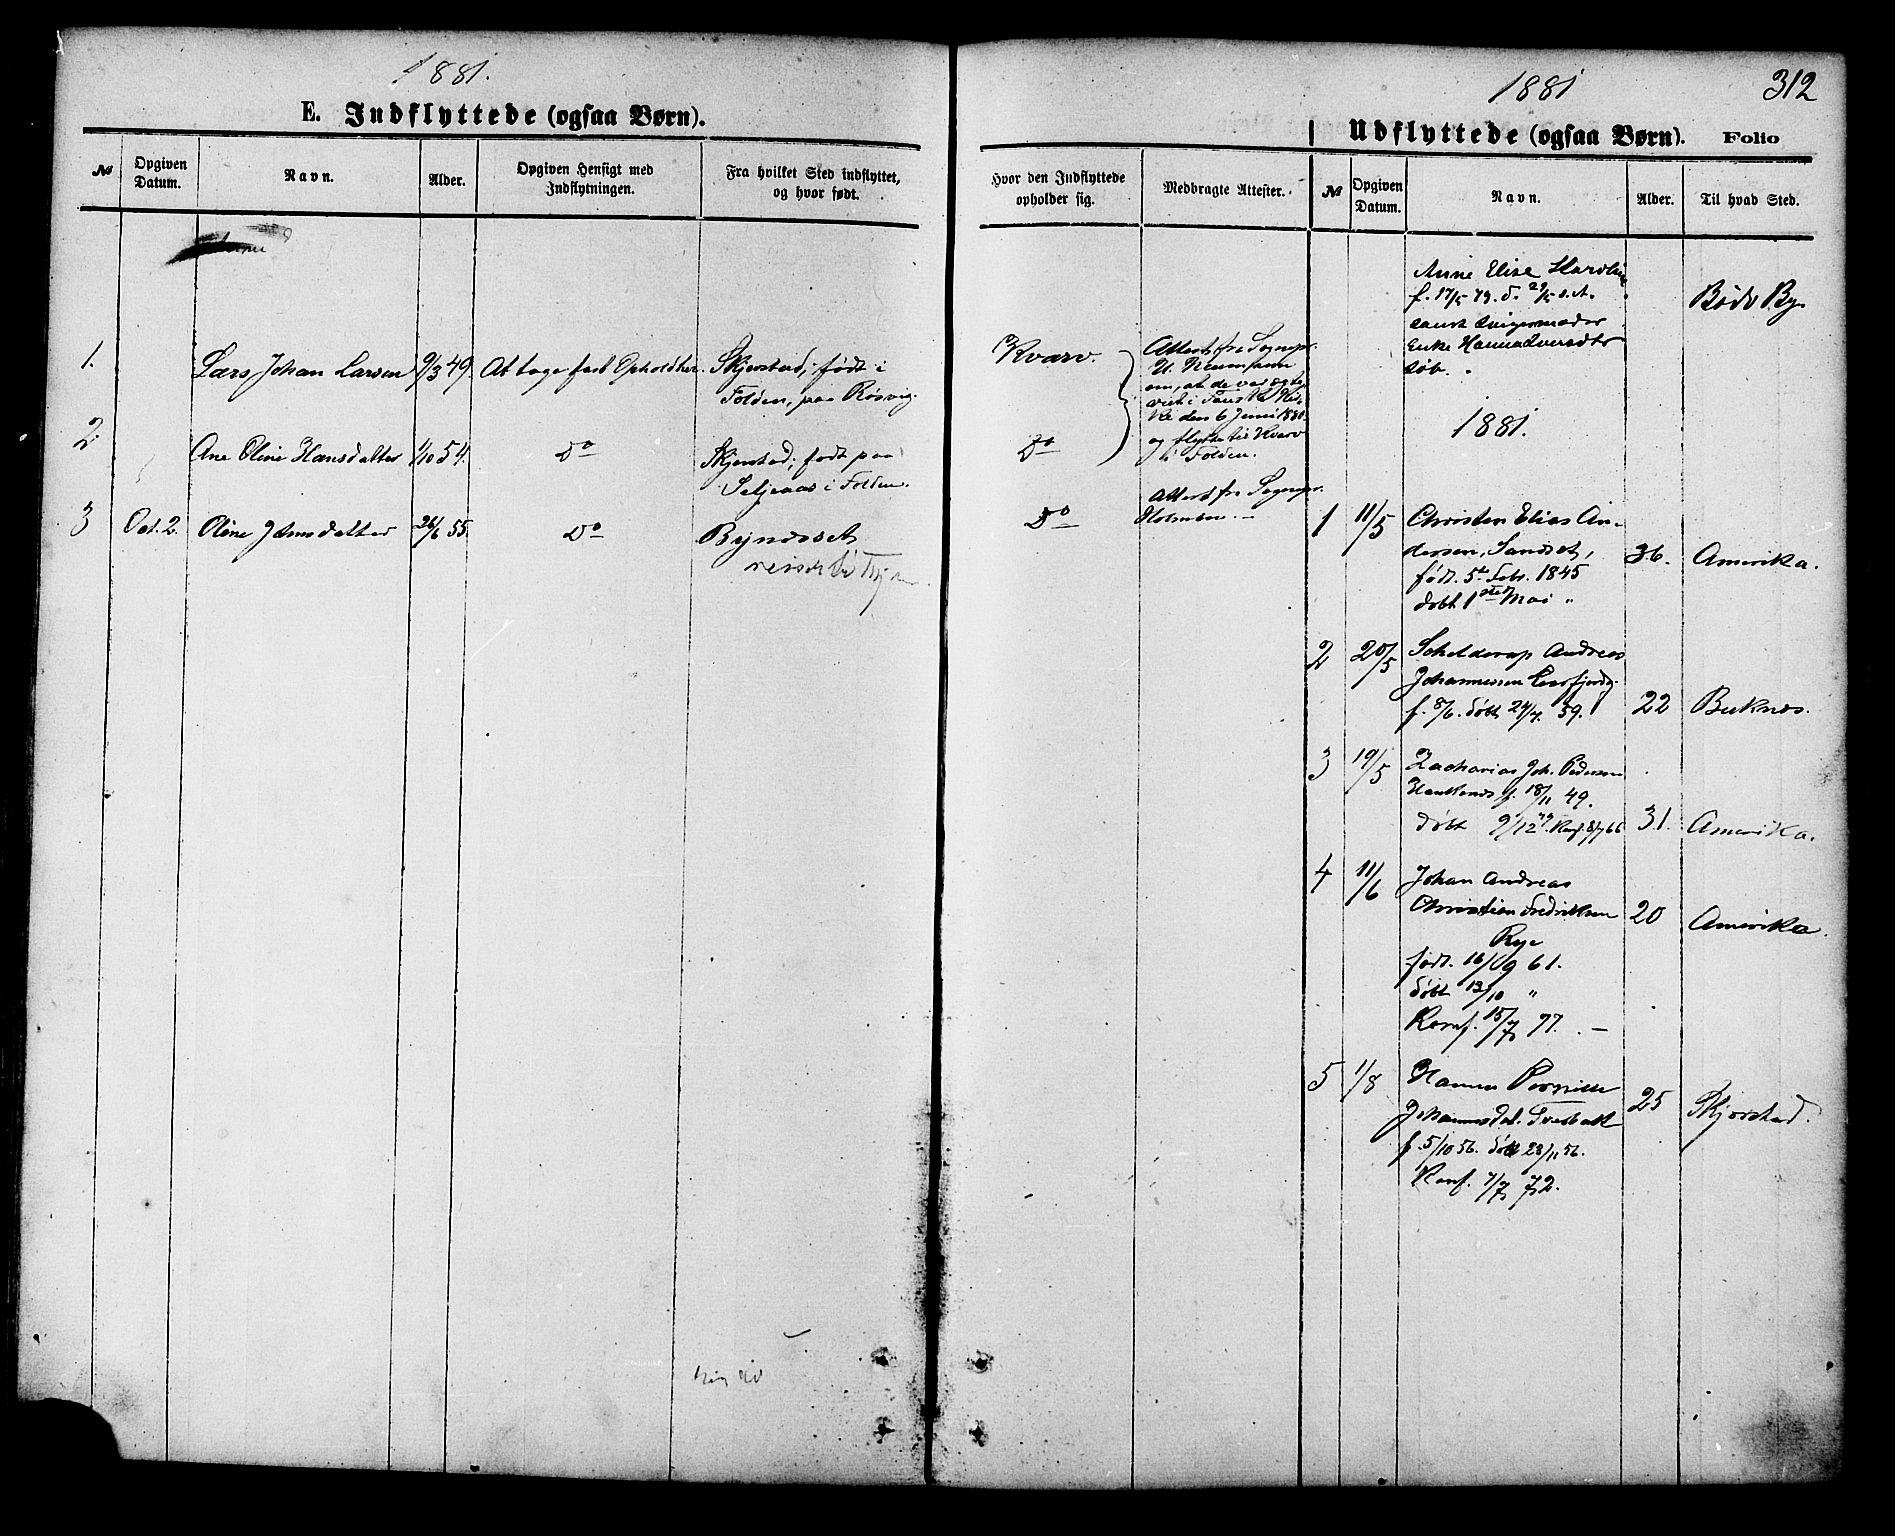 1881.
E. Indflyttede (ogsaa Børn).
№ Opgiven Datum. Navn. Alder. Opgiven Hensigt med Indflytningen. Fra hvilket Sted indflyttet, og hvor født.
1. Lars Johan Larsen 9/3 49. At tage fast Ophold her. Skjerstad; født i
Folden, paa Røsvig.
2 Ane Oline Hansdatter 1/10 54. Do Skjerstad; født paa
Seljeaas i Folden.
3 Oct. 2. Oline Johnsdatter 26/6 55. Do Byneset
reiser til
1881 312
Udflyttede (ogsaa Børn). Folio
Hvor den Indflyttede opholder sig. Medbragte Attester. № Opgiven Datum. Navn. Alder. Til hvad Sted.
Kvarv.
Attest fra Sognepr.
U. Neumann
om, at de var ægte
viet i
den 6 Juni 1880
Do og flytte til Kvarv
i Folden.
Do Attest fra Sognepr.
Holmboe.
Anne Elise
f. 17/5 79. d. 29/5 s.A. Bodø By.
samt Svigermoder
Enke
1881.
1 11/5 Christen Elias An-
dersen, Sandset, 36. Amerika.
født. 5te Febr. 1845
døbt 1ste Mai "
2 20/5 Schelderup Andreas
Johannessen
f. 8/6. døbt 24/7. 59. 22 Buknes.
3 19/5 Zacharias Joh. Pedersen
f. 18/11 49.
døbt 9/12 49. Konf. 8/7 66 31. Amerika.
4 11/6 Johan Andreas
Christian Fredriksen 20 Amerika.
Rye
født. 16/9 61.
døbt 13/10 "
Konf. 15/7 77. —
5 1/8 Hanna Pernille
Johannesdat. 25 Skjerstad.
f. 5/10 56. døbt 23/11 56.
Konf. 7/7 72.